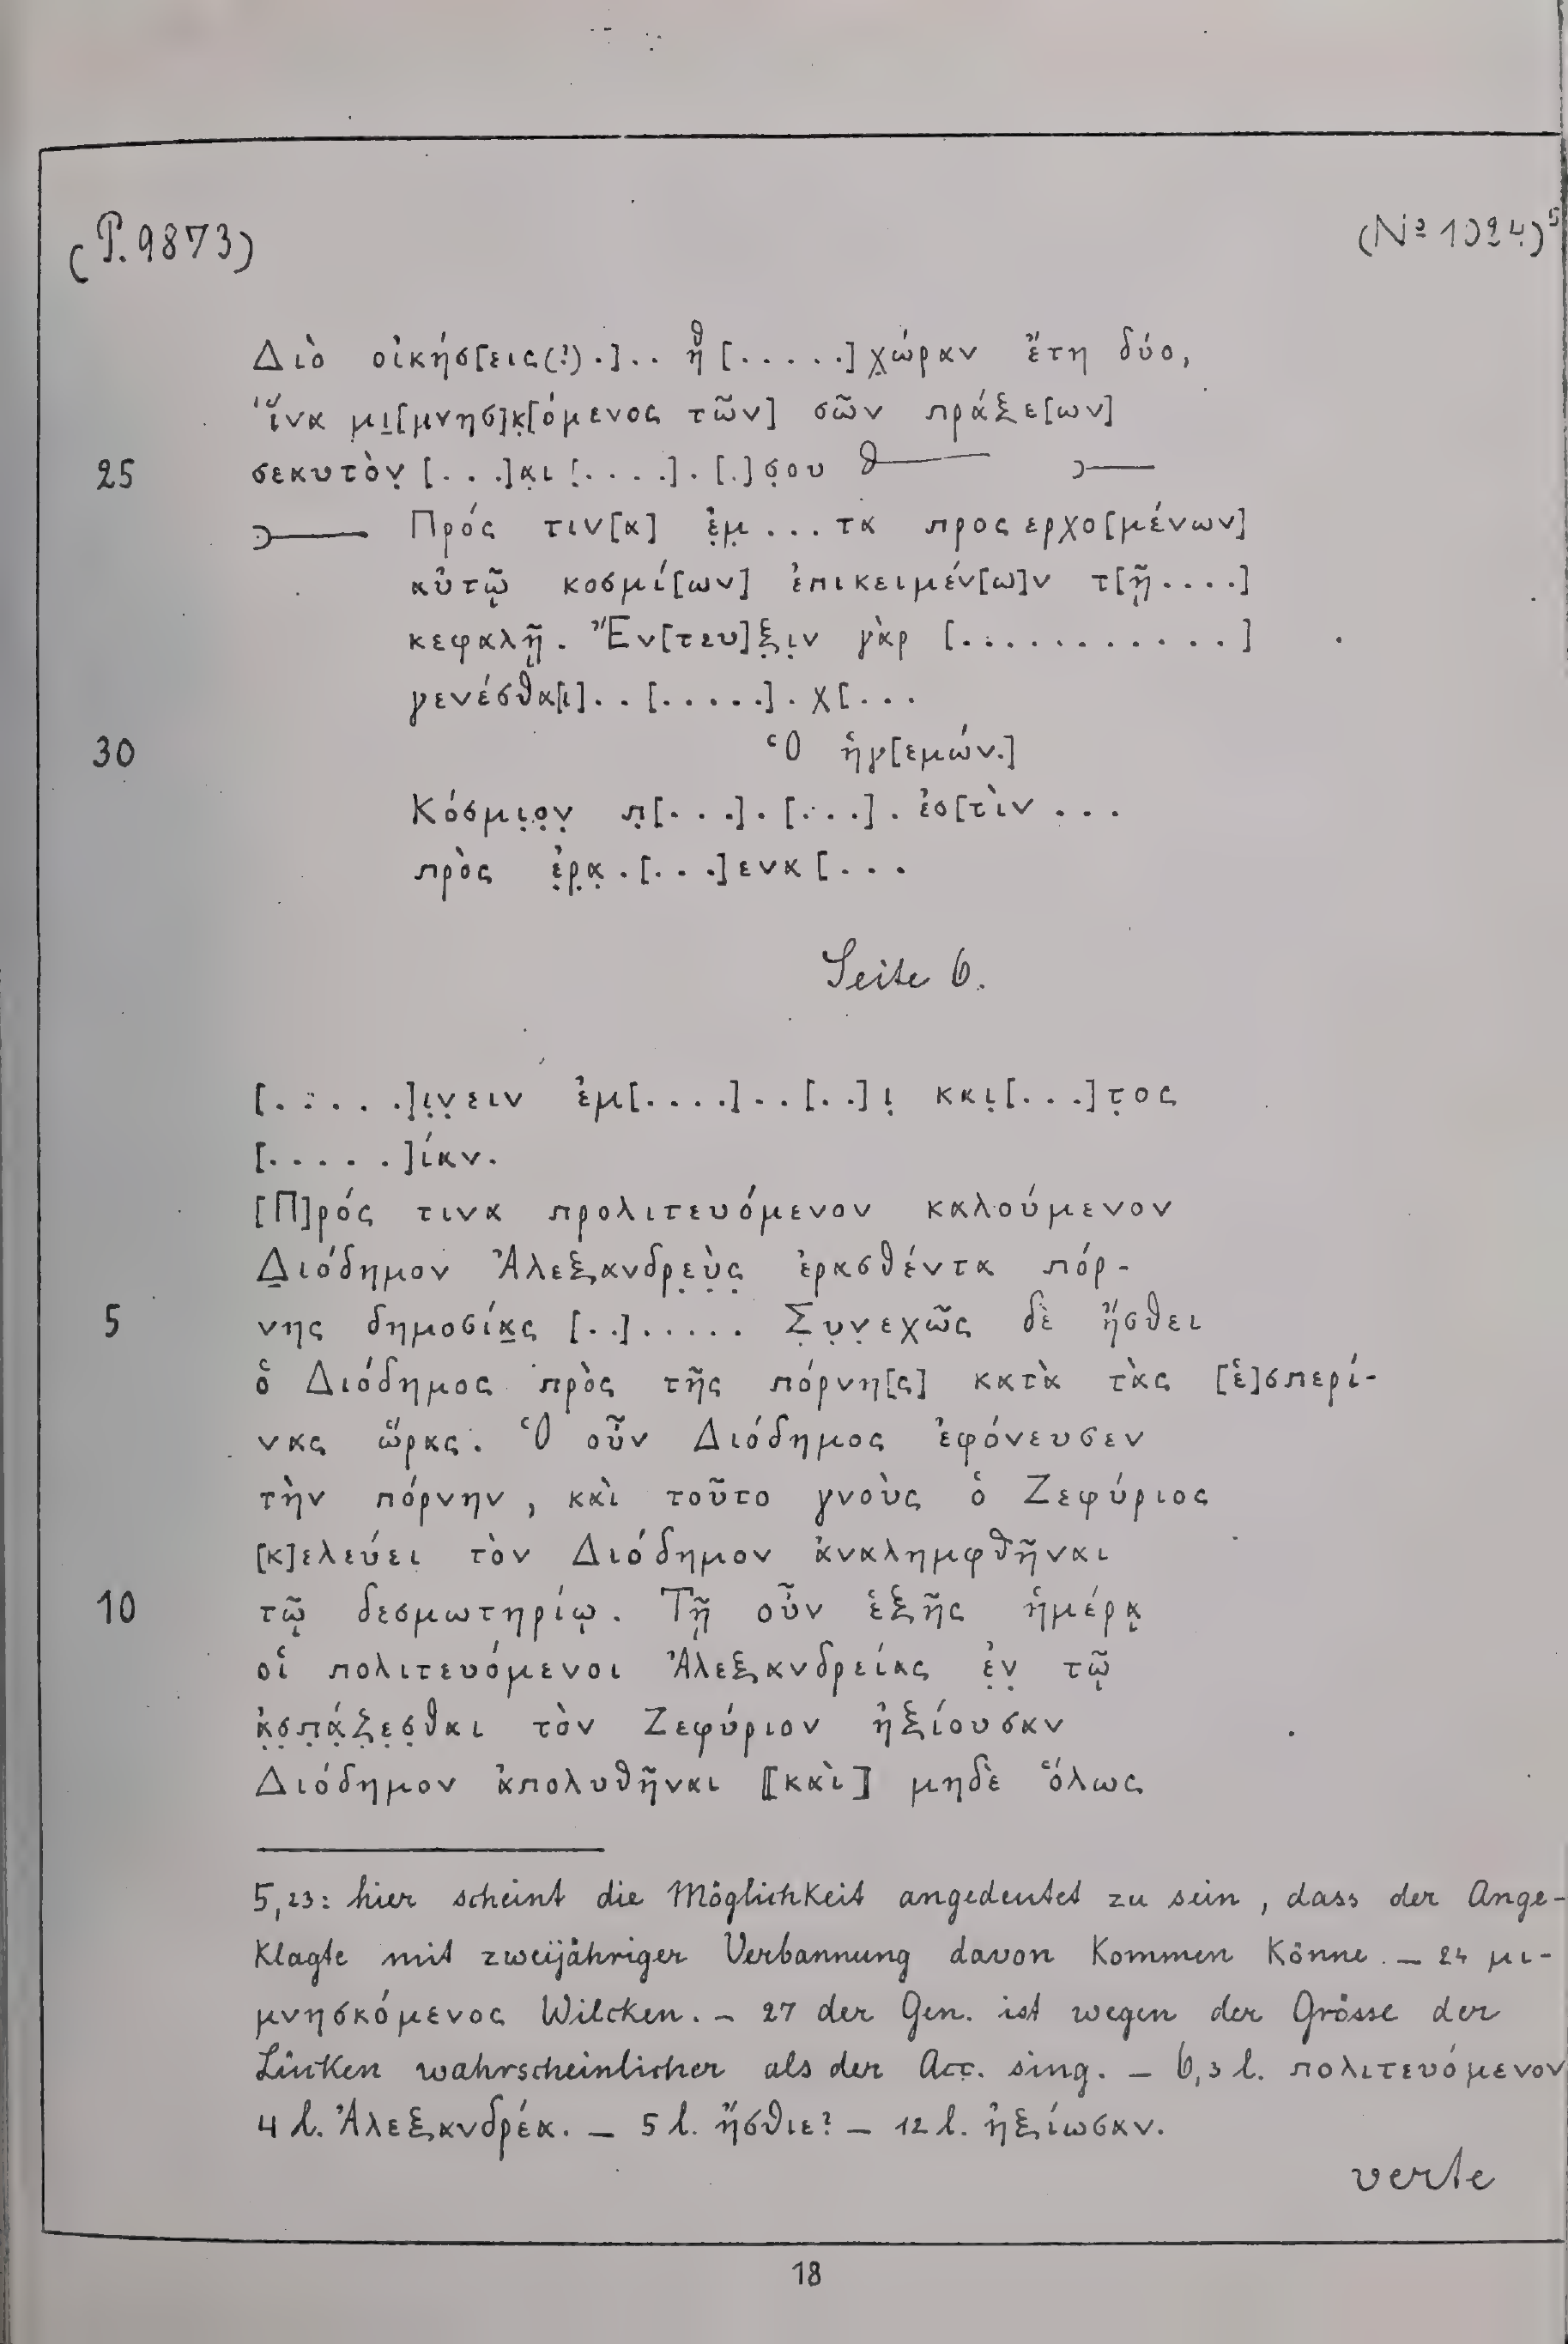 (P. 9873)
(No 1024)5
Διὸ οἰκήσ[εις(?) .] . . ἢ [. . . . .] χ̣ώραν ἔτη δύο,
ἵνα μι̣[μνησ]κ̣[όμενος τῶν] σῶν πράξε[ων]
25 σεαυτὸν̣ [. . .]α̣ι [. . . .] . [.] σ̣ου
Πρός τιν[α] ἐ̣μ̣ . . . τα προσερχο[μένων]
αὐτῷ κοσμί[ων] ἐπικειμέν[ω]ν τ[ῇ . . . .]
κεφαλῇ. Ἔν[τευ]ξ̣ι̣ν γὰρ [. . . . . . . . . . .]
γενέσθα[ι] . . [. . . . .] . χ[. . .
30 Ὁ ἡγ[εμών.]
Κόσμι̣ο̣ν̣ π̣[. . .] . [. . .] . ἐσ[τὶν . . .
πρὸς ἐ̣ρ̣α̣ . [. . .]ενα[. . .
Seite 6.
[. . . . . .]ι̣ν̣ειν ἐμ[. . . .] . . [. .] ι̣ και̣[. . .]τ̣ος
[. . . . . .]ίαν.
[Π]ρός τινα προλιτευόμενον καλούμενον
Δ̣ιόδημον Ἀλεξανδρ̣ε̣ὺ̣ς̣ ἐρασθέντα πόρ-
5 νης δημοσία̣ς [. .] . . . . . Σ̣υ̣ν̣εχῶς δὲ ἤσθει
ὁ Διόδημος πρὸς τῆς πόρνη[ς] κατὰ τὰς [ἑ]σπερί-
νας ὥρας. Ὁ οὖν Διόδημος ἐφόνευσεν
τὴν πόρνην, καὶ τοῦτο γνοὺς ὁ Ζεφύριος
[κ]ελεύει τὸν Διόδημον ἀναλημφθῆναι
10 τῷ δεσμωτηρίῳ. Τῇ οὖν ἑξῆς ἡμέρᾳ
οἱ πολιτευόμενοι Ἀλεξανδρείας ἐ̣ν̣ τῷ
ἀ̣σ̣π̣ά̣ζ̣ε̣σ̣θαι τὸν Ζεφύριον ἠξίουσαν
Διόδημον ἀπολυθῆναι ⟦καὶ⟧ μηδὲ ὅλως
5,23: hier scheint die Möglichkeit angedeutet zu sein, dass der Ange-
klagte mit zweijähriger Verbannung davon kommen könne. – 24 μι-
μνησκόμενος Wilcken. – 27 der Gen. ist wegen der Grösse der
Lücken wahrscheinlicher als der Acc. sing. – 6,3 l. πολιτευόμενον
4 l. Ἀλεξανδρέα. – 5 l. ἤσθιε? – 12 l. ἠξίωσαν.
verte
18